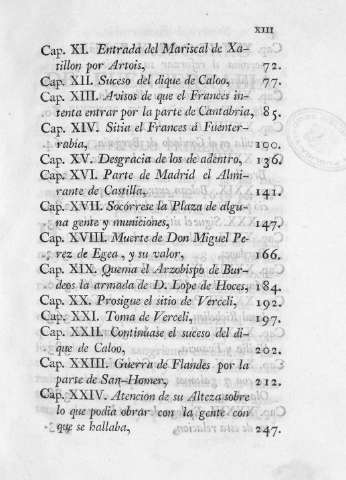 XIII
Cap. XI. Entrada del Mariscal de Xa-
tillon por Artois, 72.
Cap. XII. Suceso del dique de Caloo, 77.
Cap. XIII. Avisos de que el Frances in-
tenta entrar por la parte de Cantabria, 85.
Cap. XIV. Sitia el Frances á Fuenter-
rabia, 190.
Cap. XV. Desgracia de los de adentro, 136.
Cap. XVI. Parte de Madrid el Almi-
rante de Castilla, 141.
Cap. XVII. Socórrese la Plaza de algu-
na gente y municiones, 147.
Cap. XVIII. Muerte de Don Miguel Pe-
rez de Egea, y su valor, 166.
Cap. XIX. Quema el Arzobispo de Bur-
deos la armada de D. Lope de Hoces, 184.
Cap. XX. Prosigue el sitio de Verceli, 192.
Cap. XXI. Toma de Verceli, 197.
Cap. XXII. Continúase el suceso del di-
que de Caloo, 202.
Cap. XXIII. Guerra de Flandes por la
parte de San-Homer, 212.
Cap. XXIV. Atencion de su Alteza sobre
lo que podia obrar con la gente con
que se hallaba, 247.